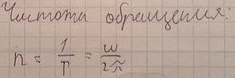 Частота обращения:
n = 1/T = ω/2π